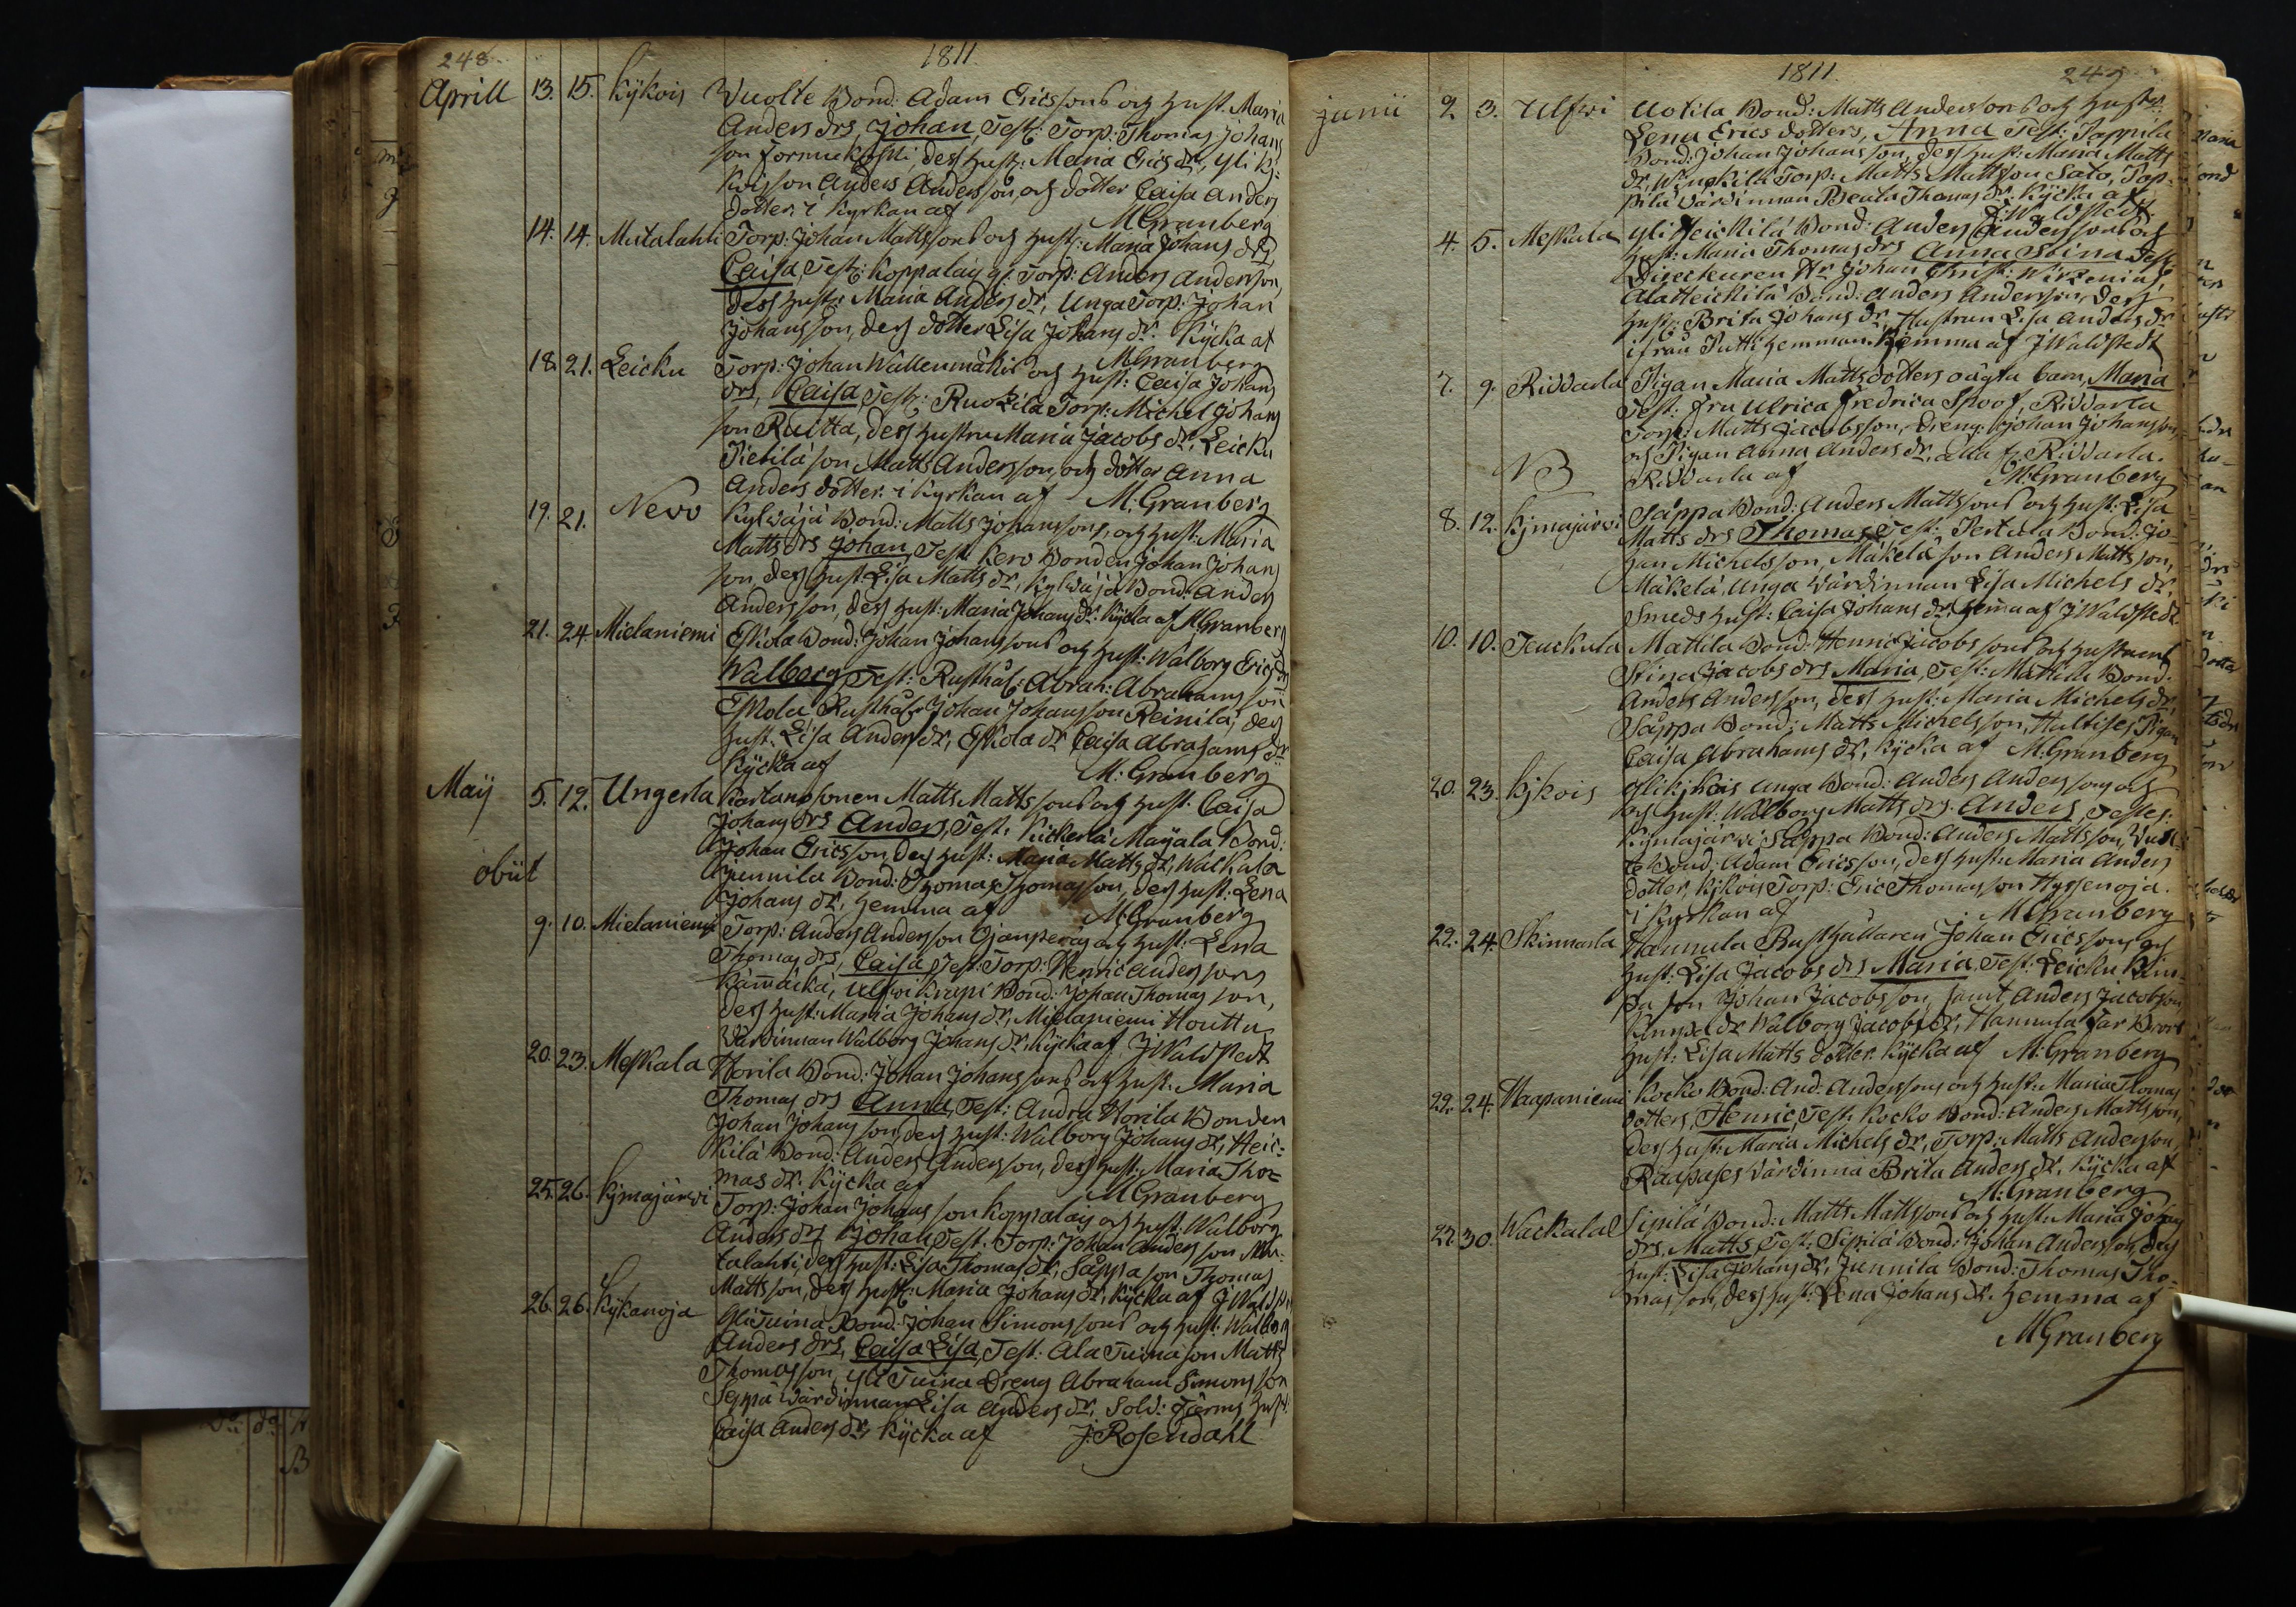 248. 1811.
Aprill 13. 15. Kykois Vuolte Bond: Adam Ericssons och hust. Maria
Anders drs, Johan, Test: Torp: Thomas Johans
son, dess hust: Maria Erics dr, Yli Ky-
kois son Anders Andersson, och dotter Caisa Anders
dotter. i Kyrkan af M. Granberg
14. 14. Mutalahti Torp: Johan Mattssons och hust: Maria Johans drs,
Caisa, Test: Koppalais gl Torp: Anders Andersson,
dess hust: Maria Anders dr, Unga Torp: Johan
Johansson, dess dotter Lisa Johans dr. Kÿcka af
M. Granberg
18. 21. Leicku Torp: Johan Wallenmäkis och hust: Caisa Johans
drs, Caisa, Test: Ruokila Torp: Michel Johans
son Ruitta, dess hustru Maria Jacobs dr, Leicku
Pietilä son Matts Andersson, och dotter Anna
Anders dotter. i Kyrkan af M. Granberg
19. 21. Nevo Kylväjä Bond: Matts Johanssons, och hust: Maria
Matts drs Johan, Test: Kero Bonden Johan Johans
son, dess hust: Lisa Matts dr, Kylväjä Bond: Anders
Andersson, dess hust: Maria Johans dr. Kycka af M. Granberg
21. 24. Mielaniemi Eskola Bond: Johan Johanssons och hust: Walborg Erics drs
Walborg, Test: Rusthål: Abrah: Abrahams son
Eskola Rusthål: Johan Johansson Reinilä, dess
hust: Lisa Anders dr, Eskola dr Caisa Abrahams dr
Kÿcka af M: Granberg
Maij 5. 12. Ungerla Kartano sonen Matts Mattssons och hust: Caisa
Johans drs Anders, Test: Kickerlä Mayala Bond:
Johan Ericsson, dess hust: Maria Matts dr, Walkala
obiit Junnila Bond: Thomas Thomasson, dess hust: Lena
Johans dr, hemma af M: Granberg
9. 10. Mielaniemi Torp: Anders Andersson Ojanperäs och hust: Lena
Thomas drs, Caisa, Test: Torp: Henric Anderssons
Ulfvi Krapi Bond: Johan Thomas son,
dess hust: Maria Johans dr, Mielaniemi Houttu
Wärdinnan Walborg Johans dr. Kycka af J Waldstedt
20. 23. Meskala Horila Bond: Johan Johanssons och hust: Maria
Thomas drs Anna, Test: Andra Horila Bonden
Johan Johans son, dess hust: Walborg Johans dr, Heic-
kilä Bond: Anders Andersson, dess hust: Maria Tho-
mas dr. Kÿcka af M Granberg
25. 26. Kjmajärwi Torp: Johan Johans son Koppalais och hust: Walborg
Anders drs Johan Test: Torp: Johan Anders son Mu-
talahti, dess hust: Lisa Thomas dr, Säppä son Thomas
Mattsson, dess hust: Maria Johans dr, Kÿcka af J Waldst:
26. 26. Kÿkanoja Yli Tuina Bond: Johan Simonssons och hust: Walborg
Anders drs, Caisa Lisa, Test: Ala Tuina son Matts
Thomasson, Yli Tuina Dreng Abraham Simons son
Seppä wärdinnan Lisa Anders dr, Sold: hust:
Caisa Anders dr, Kÿcka af J. Rosendahl
1811. 249
Junii 2 3. Ulfwi Uotila Bond: Matts Anderssons och hustr:
Lena Erics dotters, Anna Test: Pappila
Bond: Johan Johansson, dess hust: Maria Matts
dr, Torp: Matts Mattsson Salo, Pap-
pila wärdinnan Beata Thomas dr. Kycka af
J: Waldstedt
4. 5. Meskala Yli Heickilä Bond: Anders Anderssons och
hust: Maria Thomas drs Anna Stina Test:
Directeuren Hr Johan Christ: Wirzenius,
Ala Heickilä Bond: Anders Andersson, dess
hust: Brita Johans dr, Hustrun Lisa Anders dr
ifrån Putti hemman. hemma af J Waldstedt
7. 9. Riddarla Pigan Maria Mattsdotters oägta barn, Maria
Test: Fru Ulrica Fredrica Spoof, Riddarla
Torp: Matts Jacobsson, dreng: Johan Johansson
och Pigan Anna Anders dr, alla fr. Riddarla.
NB Riddarla af M: Granberg
8. 12. Kjmajärwi Säppä Bond: Anders Mattssons och hust: Lisa
Matts drs Thomas, Test: Pertula Bond: Jo-
han Michelsson, Mäkelä son Anders Mattsson,
Mäkelä Unga Wärdinnan Lisa Michels dr,
Smeds hust: Caisa Johans dr, hemma af J Waldstedt.
10. 10. Teuckula Mattila Bond: Henric Jacobssons och hustruns
Stina Jacobs drs Maria, Test: Mattila Bond:
Anders Andersson, dess hust: Maria Michels dr,
Säppä Bond: Matts Michelsson, Pigan
Caisa Abrahams dr, Kÿcka af M: Granberg
20. 23. Kjkois Ylikjkois Unga Bond: Anders Anderssons och
och hust: Walborg Matts drs. Anders, Testes:
Kjmajärwi Säppä Bond: Anders Mattsson, Vuol-
te Bond: Adam Ericsson, dess hust: Maria Anders
dotter, Kjkois Torp: Eric Thomasson Hyssenoja.
i Kyrkan af M Granberg
22. 24. Skinnarla Hannula Rusthållaren Johan Ericssons och
hust: Lisa Jacobs drs Maria, Test: Leicku
son Johan Jacobsson, samt, Anders Jacobsson,
dr Walborg Jacobs dr, Hannula Far Brors
hust: Lisa Matts dotter. Kÿcka af M: Granberg
22. 24. Haapaniemi Kocko Bond: And: Anderssons och hust: Maria Thomas
dotters, Henric, Test: Kocko Bond: Anders Mattsson,
dess hust: Maria Michels dr, Torp: Matts Andersson,
Raapases wärdinna Brita Anders dr. Kÿcka af
M: Granberg
27. 30. Wackalal Sipilä Bond: Matts Mattssons och hust: Maria Johans
drs. Matts, Test: Sipilä Bond: Johan Andersson, dess
hust: Lisa Johans dr, Junnila Bond: Thomas Tho-
mas son, dess hust: Lena Johans dr. hemma af
M Granberg